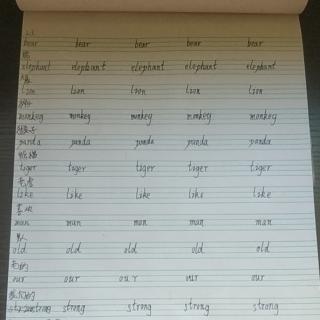 bear bear bear bear bear
熊
elephant elephant elephant elephant elephant
lion lion lion lion lion
狮子
monkey monkey monkey monkey monkey
猴子
panda panda panda panda panda
熊猫
tiger tiger tiger tiger tiger
老虎
like like like like like
喜欢
man man man man man
男人
old old old old old
老的
our our our our our
我们的
strong strong strong strong strong